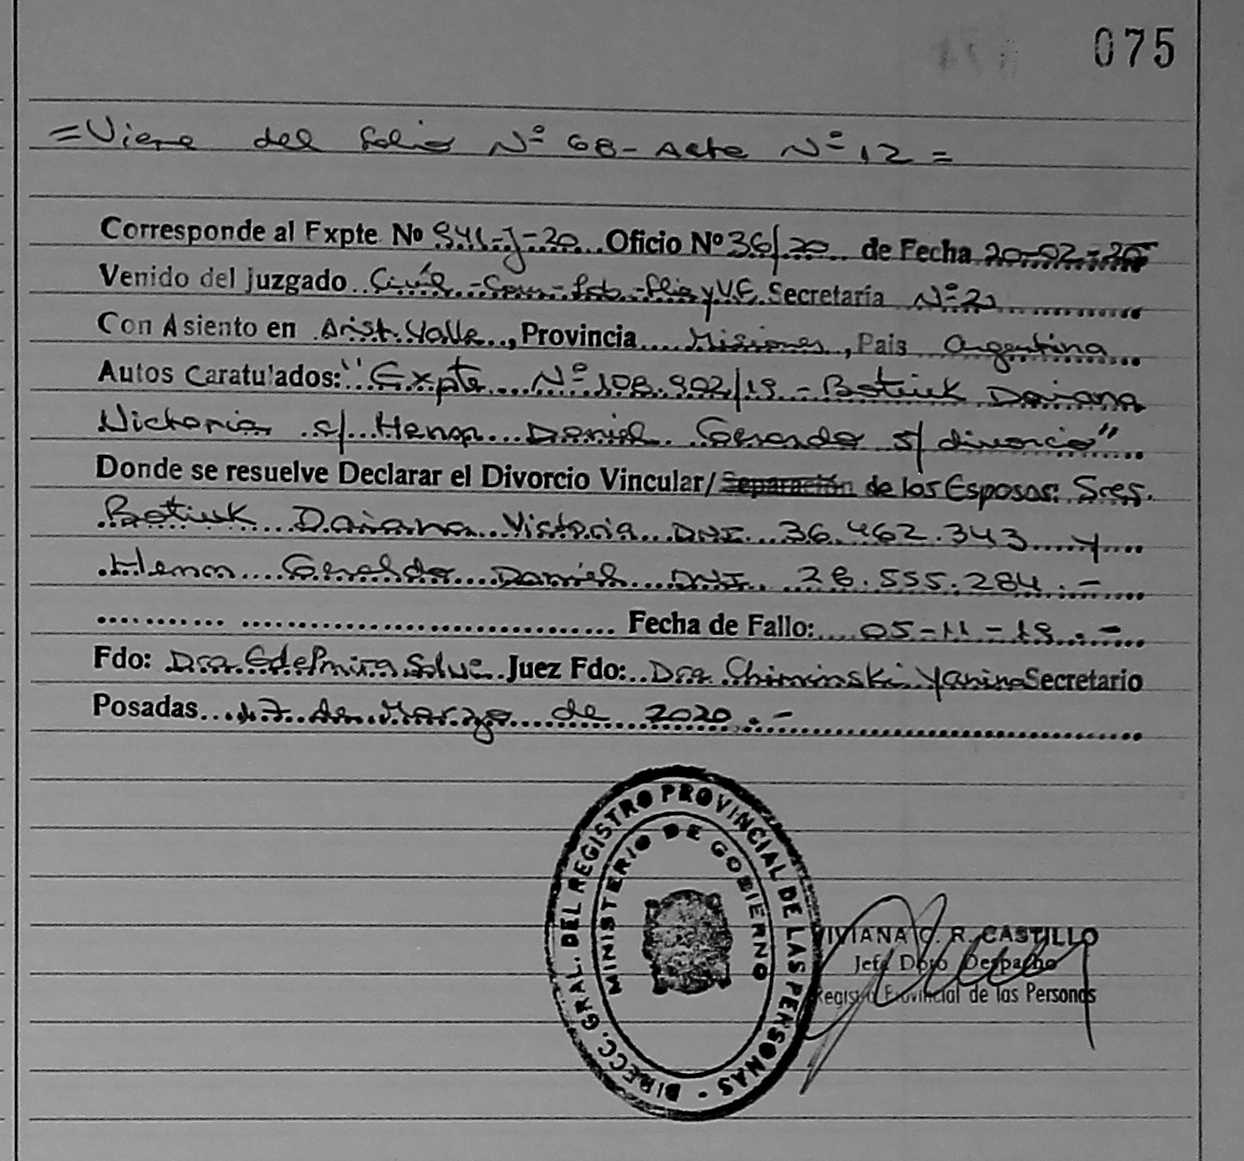 075
=Viene del folio Nº 68- Acta Nº 12 =
Corresponde al Expte Nº 941-J-20 Oficio Nº 36/20 de Fecha 20-02-20
Venido del Juzgado Civil -Com- Lab -Flia y V.F. Secretaría Nº 2
Con Asiento en Arist. Valle, Provincia Misiones, Pais Argentina
Autos Caratulados: "Expte Nº 108.902/19 - Batiuk Daiana
Victoria c/ Henn Daniel Gerardo s/ divorcio"
Donde se resuelve Declarar el Divorcio Vincular/ Separación de los Esposos: Sres.
Batiuk Daiana Victoria DNI 36.462.343 y
Henn Daniel DNI 28.555.284.-
Fecha de Fallo: 05-11-19.-
Fdo: Dra. Edelmira Juez Fdo: Dra. Chiminski Yanina Secretario
Posadas 17 de Marzo de 2020.-
DIRECC. GRAL. DEL REGISTRO PROVINCIAL DE LAS PERSONAS -
MINISTERIO DE GOBIERNO
VIVIANA C. R. CASTILLO
Jefa Dpto Despacho
Registro Provincial de las Personas